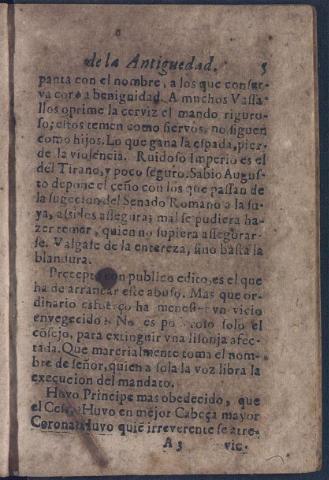 de la Antiguedad. 5
panta con el nombre, a los que conser-
va con la benignidad. A muchos Vassa-
llos oprime la cerviz el mando riguro-
so; estos temen como siervos, no siguen
como hijos. Lo que gana la espada, pier-
de la violencia. Ruidoso Imperio es el
del Tirano, y poco seguro. Sabio Augus-
to depone el ceño con los que passan de
la sugecion del Senado Romano a la su-
ya, assi los assegura; mal se pudiera ha-
zer temer, quien no supiera assegurar-
se. Valgase de la entereza, sino basta la
blandura.
Precepto con publico edito, es el que
ha de arrancar este abuso. Mas que or-
dinario esfuerço ha menester vn vicio
envegecido. No es solo el
cõsejo, para extinguir vna lisonja afec-
tada. Que materialmente toma el nom-
bre de señor, quien a sola la voz libra la
execucion del mandato.
Huvo Principe mas obedecido, que
el Cesar? Huvo en mejor Cabeça mayor
Corona? Huvo quiẽ irreverente se atre-
A 3 vie-